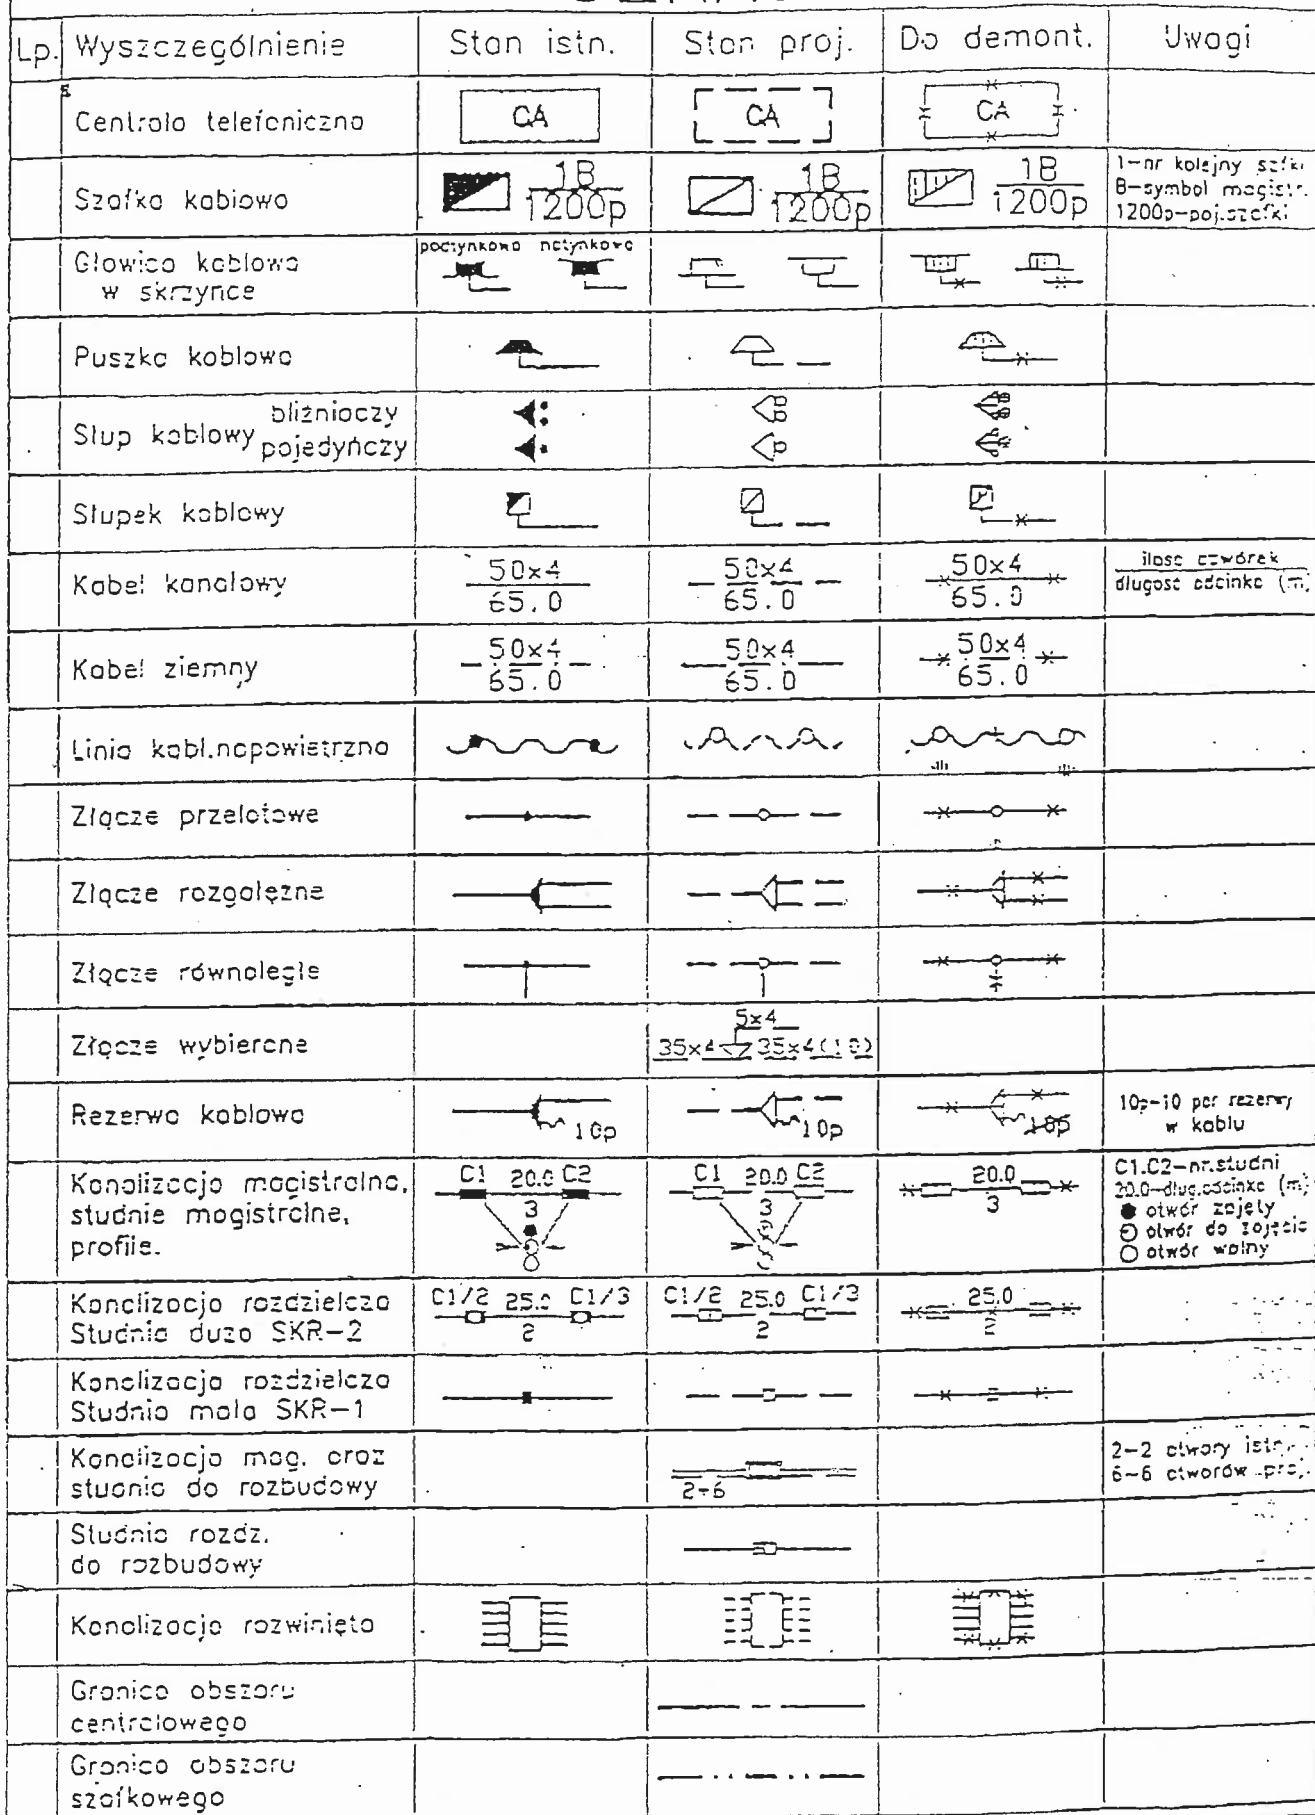 Lp. Wyszczególnienie Stan istn. Stan proj. Do demont. Uwagi
Centrala telefoniczna CA CA CA
Szafka kablowa 1B 1200p 1B 1200p 1B 1200p
1-nr kolejny szfki
B-symbol magistr.
1200p-poj.szafki
Głowica kablowa
w skrzynce
podtynkowa natynkowa
Puszka kablowa
Słup kablowy bliźniaczy
pojedyńczy
Słupek kablowy
Kabel kanałowy 50x4 65.0 50x4 65.0 50x4 65.0
ilosc czwórek
długosc odcinka (m)
Kabel ziemny 50x4 65.0 50x4 65.0 50x4 65.0
Linia kabl.napowietrzna
Złącze przelotowe
Złącze rozgałęzne
Złącze równoległe
Złącze wybierane
5x4
35x4 35x4(10)
Rezerwa kablowa 10p 10p 10p
10p-10 par rezerwy
w kablu
Kanalizacja magistralna,
studnie magistralne,
profile.
C1 20.0 C2
3
C1 20.0 C2
3
20.0
3
C1.C2-nr.studni
20.0-dług.odcinka (m)
otwór zajęty
otwór do zajęcia
otwór wolny
Kanalizacja rozdzielcza
Studnia duza SKR-2
C1/2 25.0 C1/3
2
C1/2 25.0 C1/3
2
25.0
2
Kanalizacja rozdzielcza
Studnia mała SKR-1
Kanalizacja mag. oraz
studnia do rozbudowy
2+6
2-2 otwory istn.
6-6 otworów proj.
Studnia rozdz.
do rozbudowy
Kanalizacja rozwinięta
Granica obszaru
centralowego
Granica obszaru
szafkowego